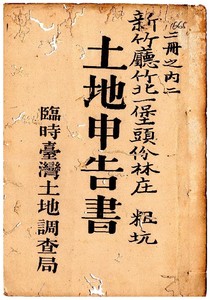 二冊之內二
新竹廳竹北一堡頭份林庄 粗坑
土地申告書
臨時臺灣土地調查局